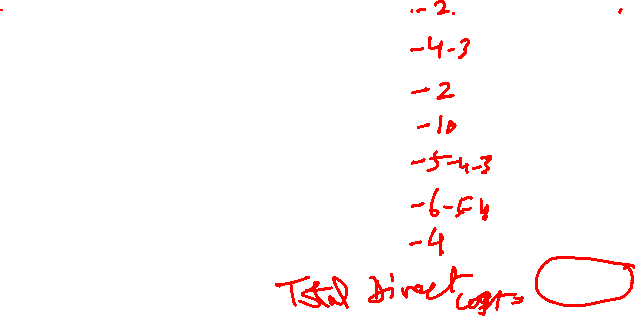 -2.
-4-3
-2
-10
-5-4-3
-6-5 4
-4
Total Direct cost=